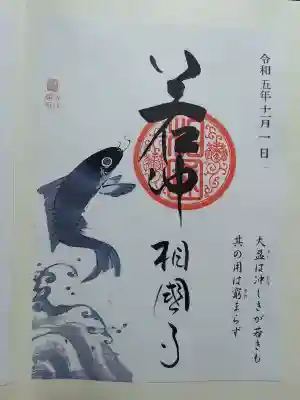 令和五年十一月一日
大盈は冲しきが若きも
其の用は窮まらず
若冲
相國寺